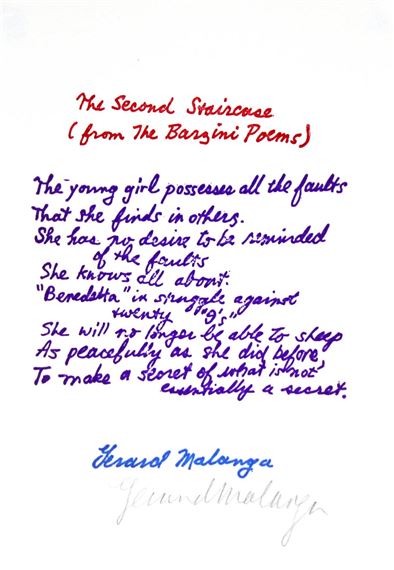 The Second Staircase
(from The Barzini Poems)
The young girl possesses all the faults
That she finds in others.
She has no desire to be reminded
of the faults
She knows all about.
"Benedetta" in struggle against
twenty "g's"
She will no longer be able to sheep
As peacefully as she did before
To make a secret of what is not
essentially a secret.
Gerard Malanga
Gerard Malanga